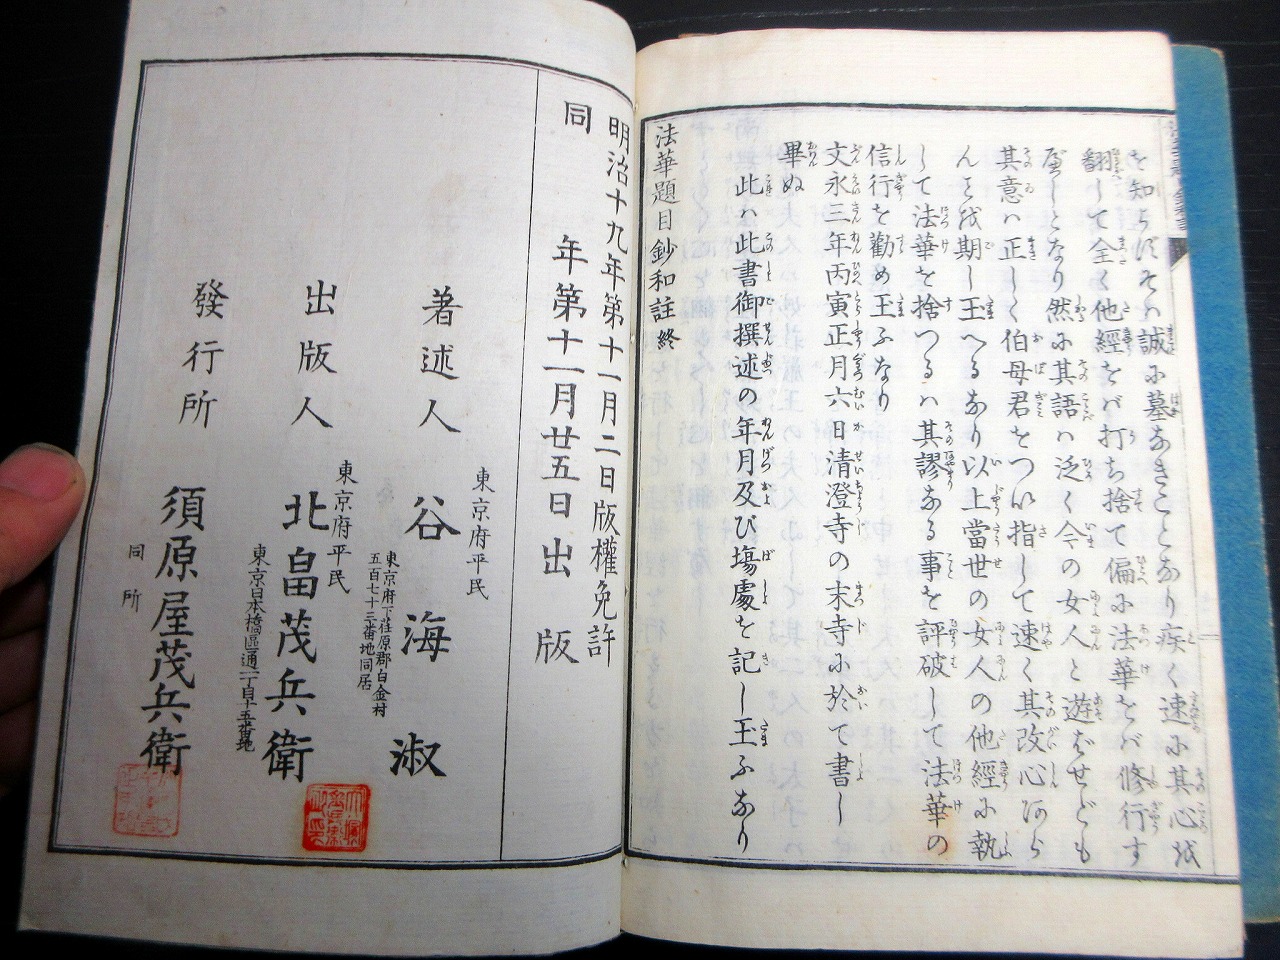 を知らずそは誠に墓なきことなり疾く速に其心を
翻して全く他經をバ打ち捨て偏に法華をバ修行す
べしとなり然に其語ハ泛く今の女人と遊ばせども
其意ハ正しく伯母君をつい指して速く其改心あら
んことを期し玉へるなり以上當世の女人の他經に執
して法華を捨つるハ其謬なる事を評破して法華の
信行を勸め玉ふなり
文永三年丙寅正月六日清澄寺の末寺に於て書し
畢ぬ
此ハ此書御撰述の年月及び塲處を記し玉ふなり
法華題目鈔和註終
明治十九年第十一月二日版權免許
同 年第十一月廿五日出版
東京府平民
著述人 谷 海 淑
東京府下荏原郡白金村
五百七十三番地同居
東京府平民
出版人 北畠茂兵衛
東京日本橋區通一丁目十五番地
發行所 須原屋茂兵衛
同所